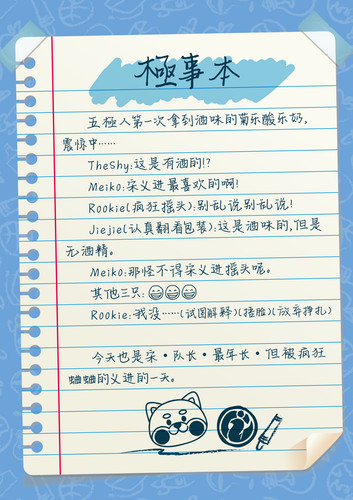 極事本
五極人第一次拿到酒味的菊乐酸乐奶，
震惊中……
TheShy:这是有酒的!?
Meiko:宋义进最喜欢的啊!
Rookie(疯狂摇头):别乱说别乱说!
Jiejie(认真翻看包装):这是酒味的,但是
无酒精。
Meiko:那怪不得宋义进摇头呢。
其他三只:😄😄😄
Rookie:我没……(试图解释)(捂脸)(放弃挣扎)
今天也是宋·队长·最年长·但被疯狂
蛐蛐的义进的一天。